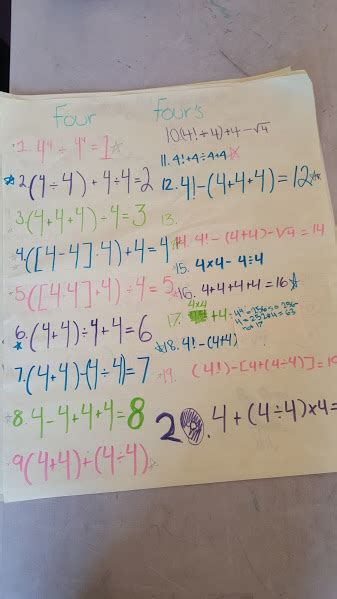 Four Four's
1. 4⁴ ÷ 4⁴ = 1
2. (4÷4) + 4÷4 = 2
3 (4+4+4) ÷ 4 = 3
4. ([4-4]·4) + 4 = 4
5. ([4·4]+4) ÷ 4 = 5
6. (4+4) ÷ 4 + 4 = 6
7. (4+4) - (4÷4) = 7
8. 4 - 4 + 4 + 4 = 8
9 (4+4) + (4÷4)
10. (4! ÷ 4) + 4 - √4
11. 4! + 4 ÷ 4 + 4
12. 4! - (4+4+4) = 12
13.
14. 4! - (4+4) - √4 = 14
15. 4x4 - 4÷4
16. 4+4+4+4 = 16
17. 4x4 + 4 ÷
not 17
18. 4! - (4+4)
19. (4!) - [4+(4÷4)] = 19
20. 4 + (4÷4) x 4 =